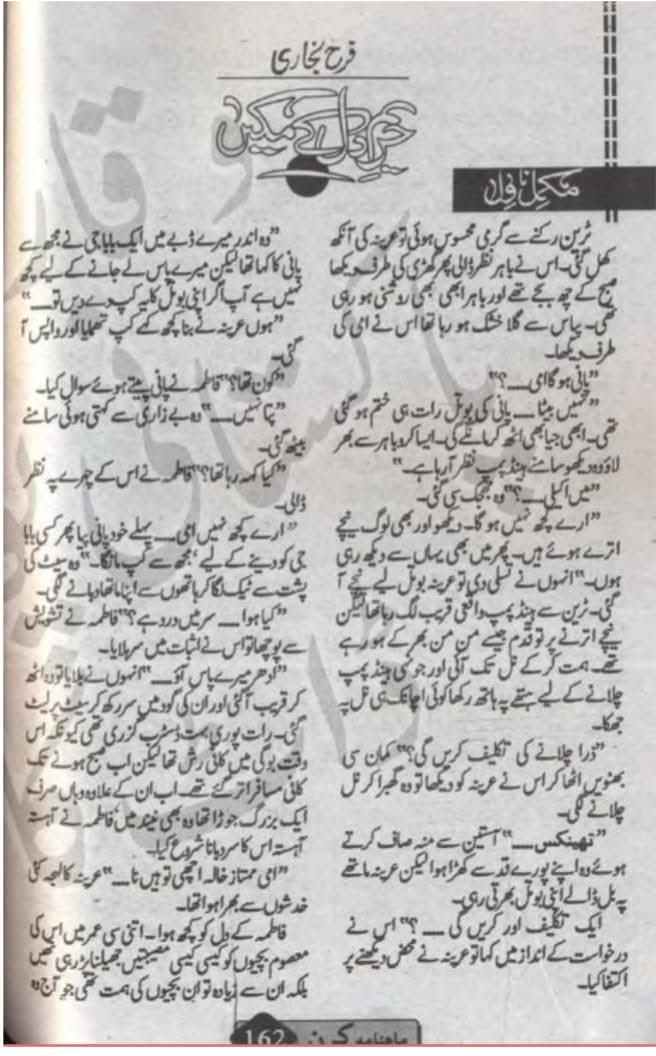 فرح بخاری
حریم دل کے مکیں
مکمل ناول
ٹرین رکنے سے گرمی محسوس ہوئی تو عرینہ کی آنکھ
کھل گئی۔ اس نے باہر نظر ڈالی پھر گھڑی کی طرف دیکھا
صبح کے چھ بجے تھے اور باہر ابھی بھی روشنی ہو رہی
تھی۔ پیاس سے گلا خشک ہو رہا تھا اس نے امی کی
طرف دیکھا۔
”پانی ہو گا امی ۔۔۔ ؟“
”نہیں بیٹا ۔۔۔ پانی کی بوتل رات ہی ختم ہو گئی
تھی۔ ابھی جیا بھی اٹھ کر مانگے گی۔ ایسا کرو باہر سے بھر
لاؤ وہ دیکھو سامنے ہینڈ پمپ نظر آ رہا ہے۔“
”میں اکیلی ۔۔۔ ؟“ وہ جھجک سی گئی۔
”ارے کچھ نہیں ہو گا۔ دیکھو اور بھی لوگ نیچے
اترے ہوئے ہیں۔ پھر میں بھی یہاں سے دیکھ رہی
ہوں۔“ انہوں نے تسلی دی تو عرینہ بوتل لیے نیچے آ
گئی۔ ٹرین سے ہینڈ پمپ واقعی قریب لگ رہا تھا لیکن
نیچے اترنے پر تو قدم جیسے من من بھر کے ہو رہے
تھے۔ ہمت کر کے نل تک آئی اور جونہی ہینڈ پمپ
چلانے کے لیے ہتھے پہ ہاتھ رکھا کوئی اچانک ہی نل پہ
جھکا۔
”ذرا چلانے کی تکلیف کریں گی؟“ کمان سی
بھنویں اٹھا کر اس نے عرینہ کو دیکھا تو وہ گھبرا کر نل
چلانے لگی۔
”تھینکس ۔۔۔“ آستین سے منہ صاف کرتے
ہوئے وہ اپنے پورے قد سے کھڑا ہوا لیکن عرینہ ماتھے
پہ بل ڈالے اپنی بوتل بھرتی رہی۔
ایک تکلیف اور کریں گی ۔۔۔ ؟“ اس نے
درخواست کے انداز میں کہا تو عرینہ نے محض دیکھنے پر
اکتفا کیا۔
”وہ اندر میرے ڈبے میں ایک بابا جی نے مجھ سے
پانی کا کہا تھا لیکن میرے پاس لے جانے کے لیے کچھ
نہیں ہے آپ اگر اپنی بوتل کا یہ کپ دے دیں تو ۔۔۔“
”ہوں عرینہ نے بنا کچھ کہے کپ تھمایا اور واپس آ
گئی۔
”کون تھا؟“ فاطمہ نے پانی پیتے ہوئے سوال کیا۔
”پتا نہیں ۔۔۔“ وہ بے زاری سے کہتی ہوئی سامنے
بیٹھ گئی۔
”کیا کہہ رہا تھا؟“ فاطمہ نے اس کے چہرے پہ نظر
ڈالی۔
”ارے کچھ نہیں امی ۔۔۔ پہلے خود پانی پیا پھر کسی بابا
جی کو دینے کے لیے ’مجھ سے کپ مانگا۔“ وہ سیٹ کی
پشت سے ٹیک لگا کر ہاتھوں سے اپنا ماتھا دبانے لگی۔
”کیا ہوا ۔۔۔ سر میں درد ہے؟“ فاطمہ نے تشویش
سے پوچھا تو اس نے اثبات میں سر ہلایا۔
”ادھر میرے پاس آؤ ۔۔۔“ انہوں نے بلایا تو وہ اٹھ
کر قریب آ گئی اور ان کی گود میں سر رکھ کر سیٹ پر لیٹ
گئی۔ رات پوری بہت ڈسٹرب گزری تھی کیونکہ اس
وقت بوگی میں کافی رش تھا لیکن اب صبح ہونے تک
کافی مسافر اتر گئے تھے۔ اب ان کے علاوہ وہاں صرف
ایک بزرگ جوڑا تھا وہ بھی نیند میں فاطمہ نے آہستہ
آہستہ اس کا سر دبانا شروع کیا۔
”امی ممتاز خالہ اچھی تو ہیں نا ۔۔۔“ عرینہ کا لہجہ کئی
خدشوں سے بھرا ہوا تھا۔
فاطمہ کے دل کو کچھ ہوا۔ اتنی سی عمر میں اس کی
معصوم بچیوں کو کیسی کیسی مصیبتیں جھیلنا پڑ رہی تھیں
بلکہ ان سے زیادہ تو ان بچیوں کی ہمت تھی جو آج وہ
ماہنامہ کرن 162